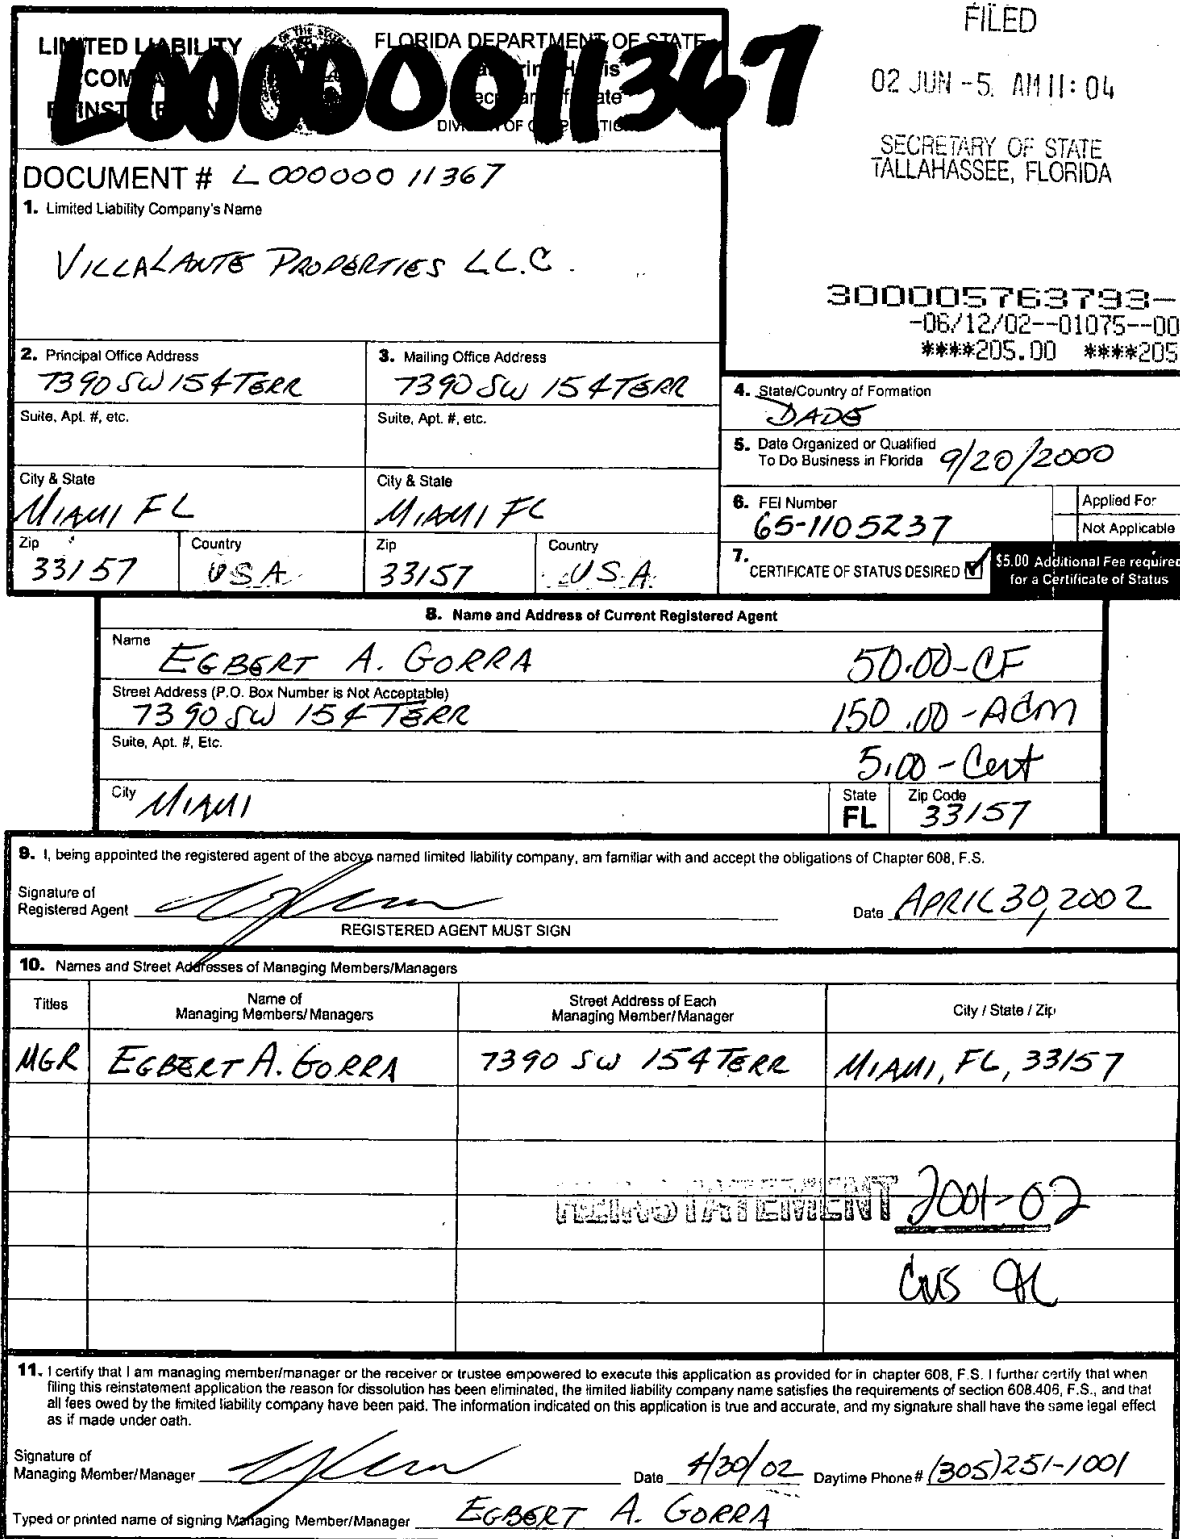 FILED
02 JUN -5 AM 11:04
SECRETARY OF STATE
TALLAHASSEE, FLORIDA
LIMITED LIABILITY
FLORIDA DEPARTMENT OF STATE
L00000011367
DOCUMENT # L00000011367
1. Limited Liability Company's Name
VILLALANTE PROPERTIES L.L.C.
3000005763793-
-06/12/02--01075--00
****205.00 ****205
2. Principal Office Address
7390 SW 154 TERR
3. Mailing Office Address
7390 SW 154 TERR
4. State/Country of Formation
DADE
Suite, Apt. #, etc.
Suite, Apt. #, etc.
5. Date Organized or Qualified
To Do Business in Florida 9/20/2000
City & State
MIAMI FL
City & State
MIAMI FL
6. FEI Number
65-1105237
Applied For
Not Applicable
Zip
33157
Country
USA
Zip
33157
Country
U.S.A.
7. CERTIFICATE OF STATUS DESIRED
$5.00 Additional Fee required
for a Certificate of Status
8. Name and Address of Current Registered Agent
Name
EGBERT A. GORRA
50.00-CF
Street Address (P.O. Box Number is Not Acceptable)
7390 SW 154 TERR
150.00-Adm
Suite, Apt. #, Etc.
5.00-Cert
City MIAMI
State
FL
Zip Code
33157
9. I, being appointed the registered agent of the above named limited liability company, am familiar with and accept the obligations of Chapter 608, F.S.
Signature of
Registered Agent
Date APRIL 30, 2002
REGISTERED AGENT MUST SIGN
10. Names and Street Addresses of Managing Members/Managers
Titles
Name of
Managing Members/Managers
Street Address of Each
Managing Member/Manager
City / State / Zip
MGR EGBERT A. GORRA 7390 SW 154 TERR MIAMI, FL, 33157
REINSTATEMENT 2001-02
11. I certify that I am managing member/manager or the receiver or trustee empowered to execute this application as provided for in chapter 608, F.S. I further certify that when
filing this reinstatement application the reason for dissolution has been eliminated, the limited liability company name satisfies the requirements of section 608.406, F.S., and that
all fees owed by the limited liability company have been paid. The information indicated on this application is true and accurate, and my signature shall have the same legal effect
as if made under oath.
Signature of
Managing Member/Manager
Date 4/30/02 Daytime Phone # (305)251-1001
Typed or printed name of signing Managing Member/Manager EGBERT A. GORRA